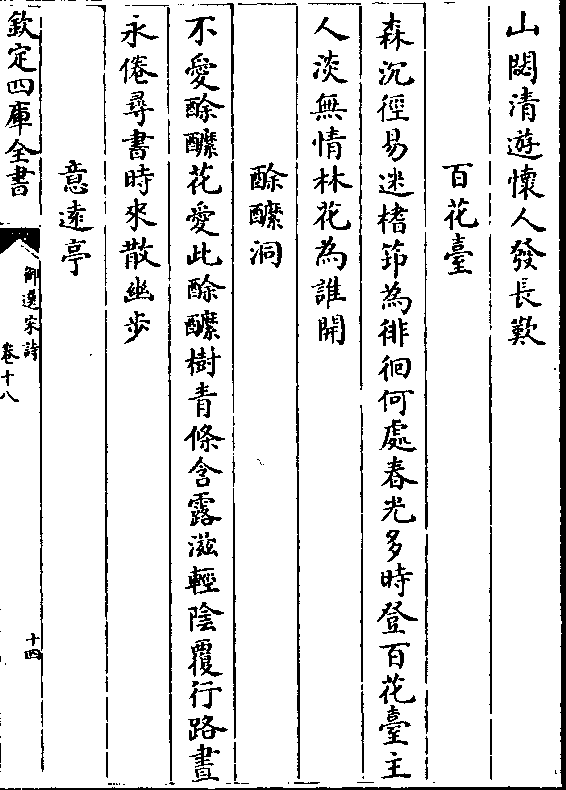 山閟清遊懷人發長歎
百花臺
森沉徑易迷榰笻為徘徊何處春光多時登百花臺主
人淡無情林花為誰開
酴醾洞
不愛酴醾花愛此酴醾樹青條含露滋輕陰覆行路晝
永倦尋書時來散幽步
意遠亭
欽定四庫全書
御選宋詩
卷十八
十四